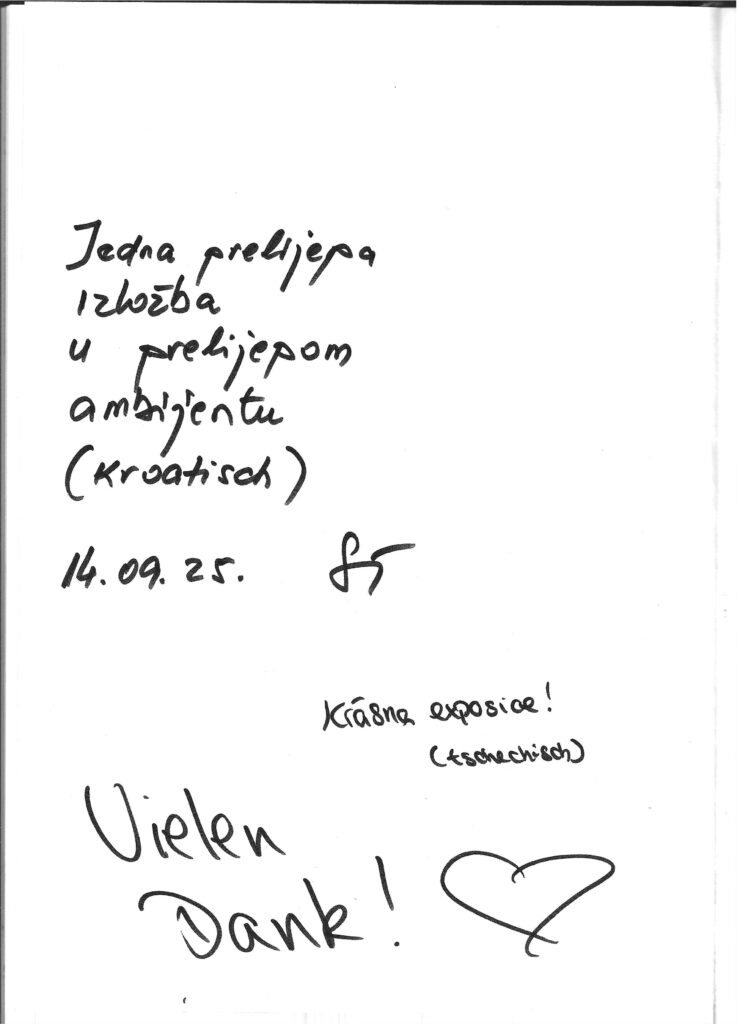 Jedna prelijepa
izložba
u prelijepom
ambijentu
(Kroatisch)
14.09.25.
Krásna exposice!
(tschechisch)
Vielen
Dank!